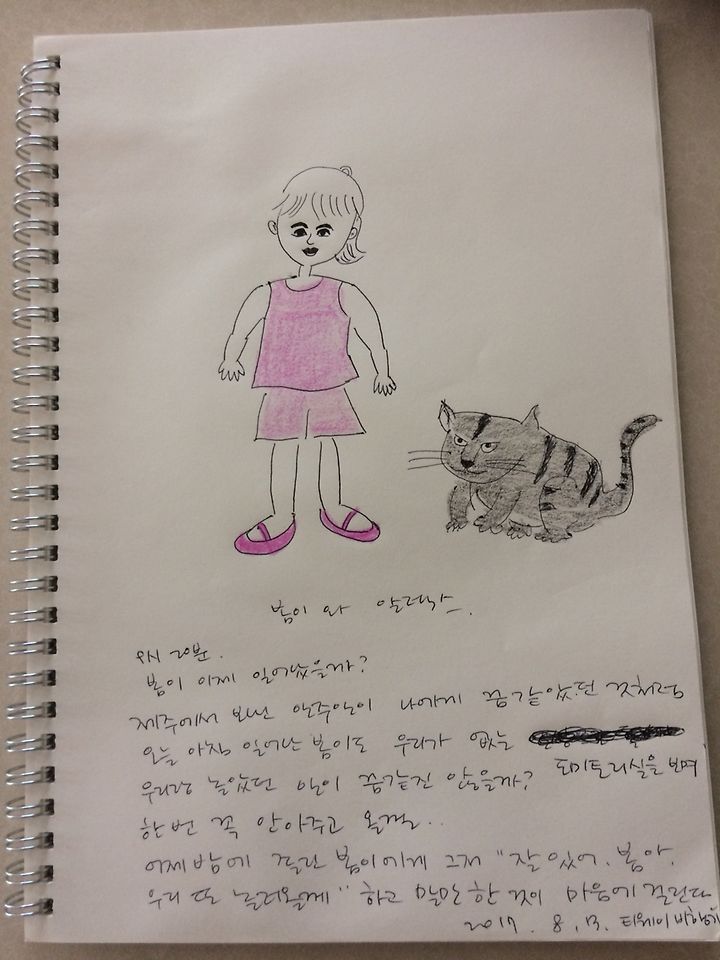 봄이 와 알러스카.
8시 20분.
봄이 이제 일어났을까?
제주에서 보낸 일주일이 나에게 꿈같았던 것처럼
오늘 아침 일어난 봄이도 우리가 없는
도미토리실을 보며
우리랑 놀았던 일이 꿈같진 않을까?
한번 꼭 안아주고 올걸..
어제밤에 헤어진 봄이에게 그저 "잘있어. 봄아.
우리 또 놀러올께" 하고 말만 한 것이 마음에 걸린다
2017. 8. 13. 티웨이 비행기